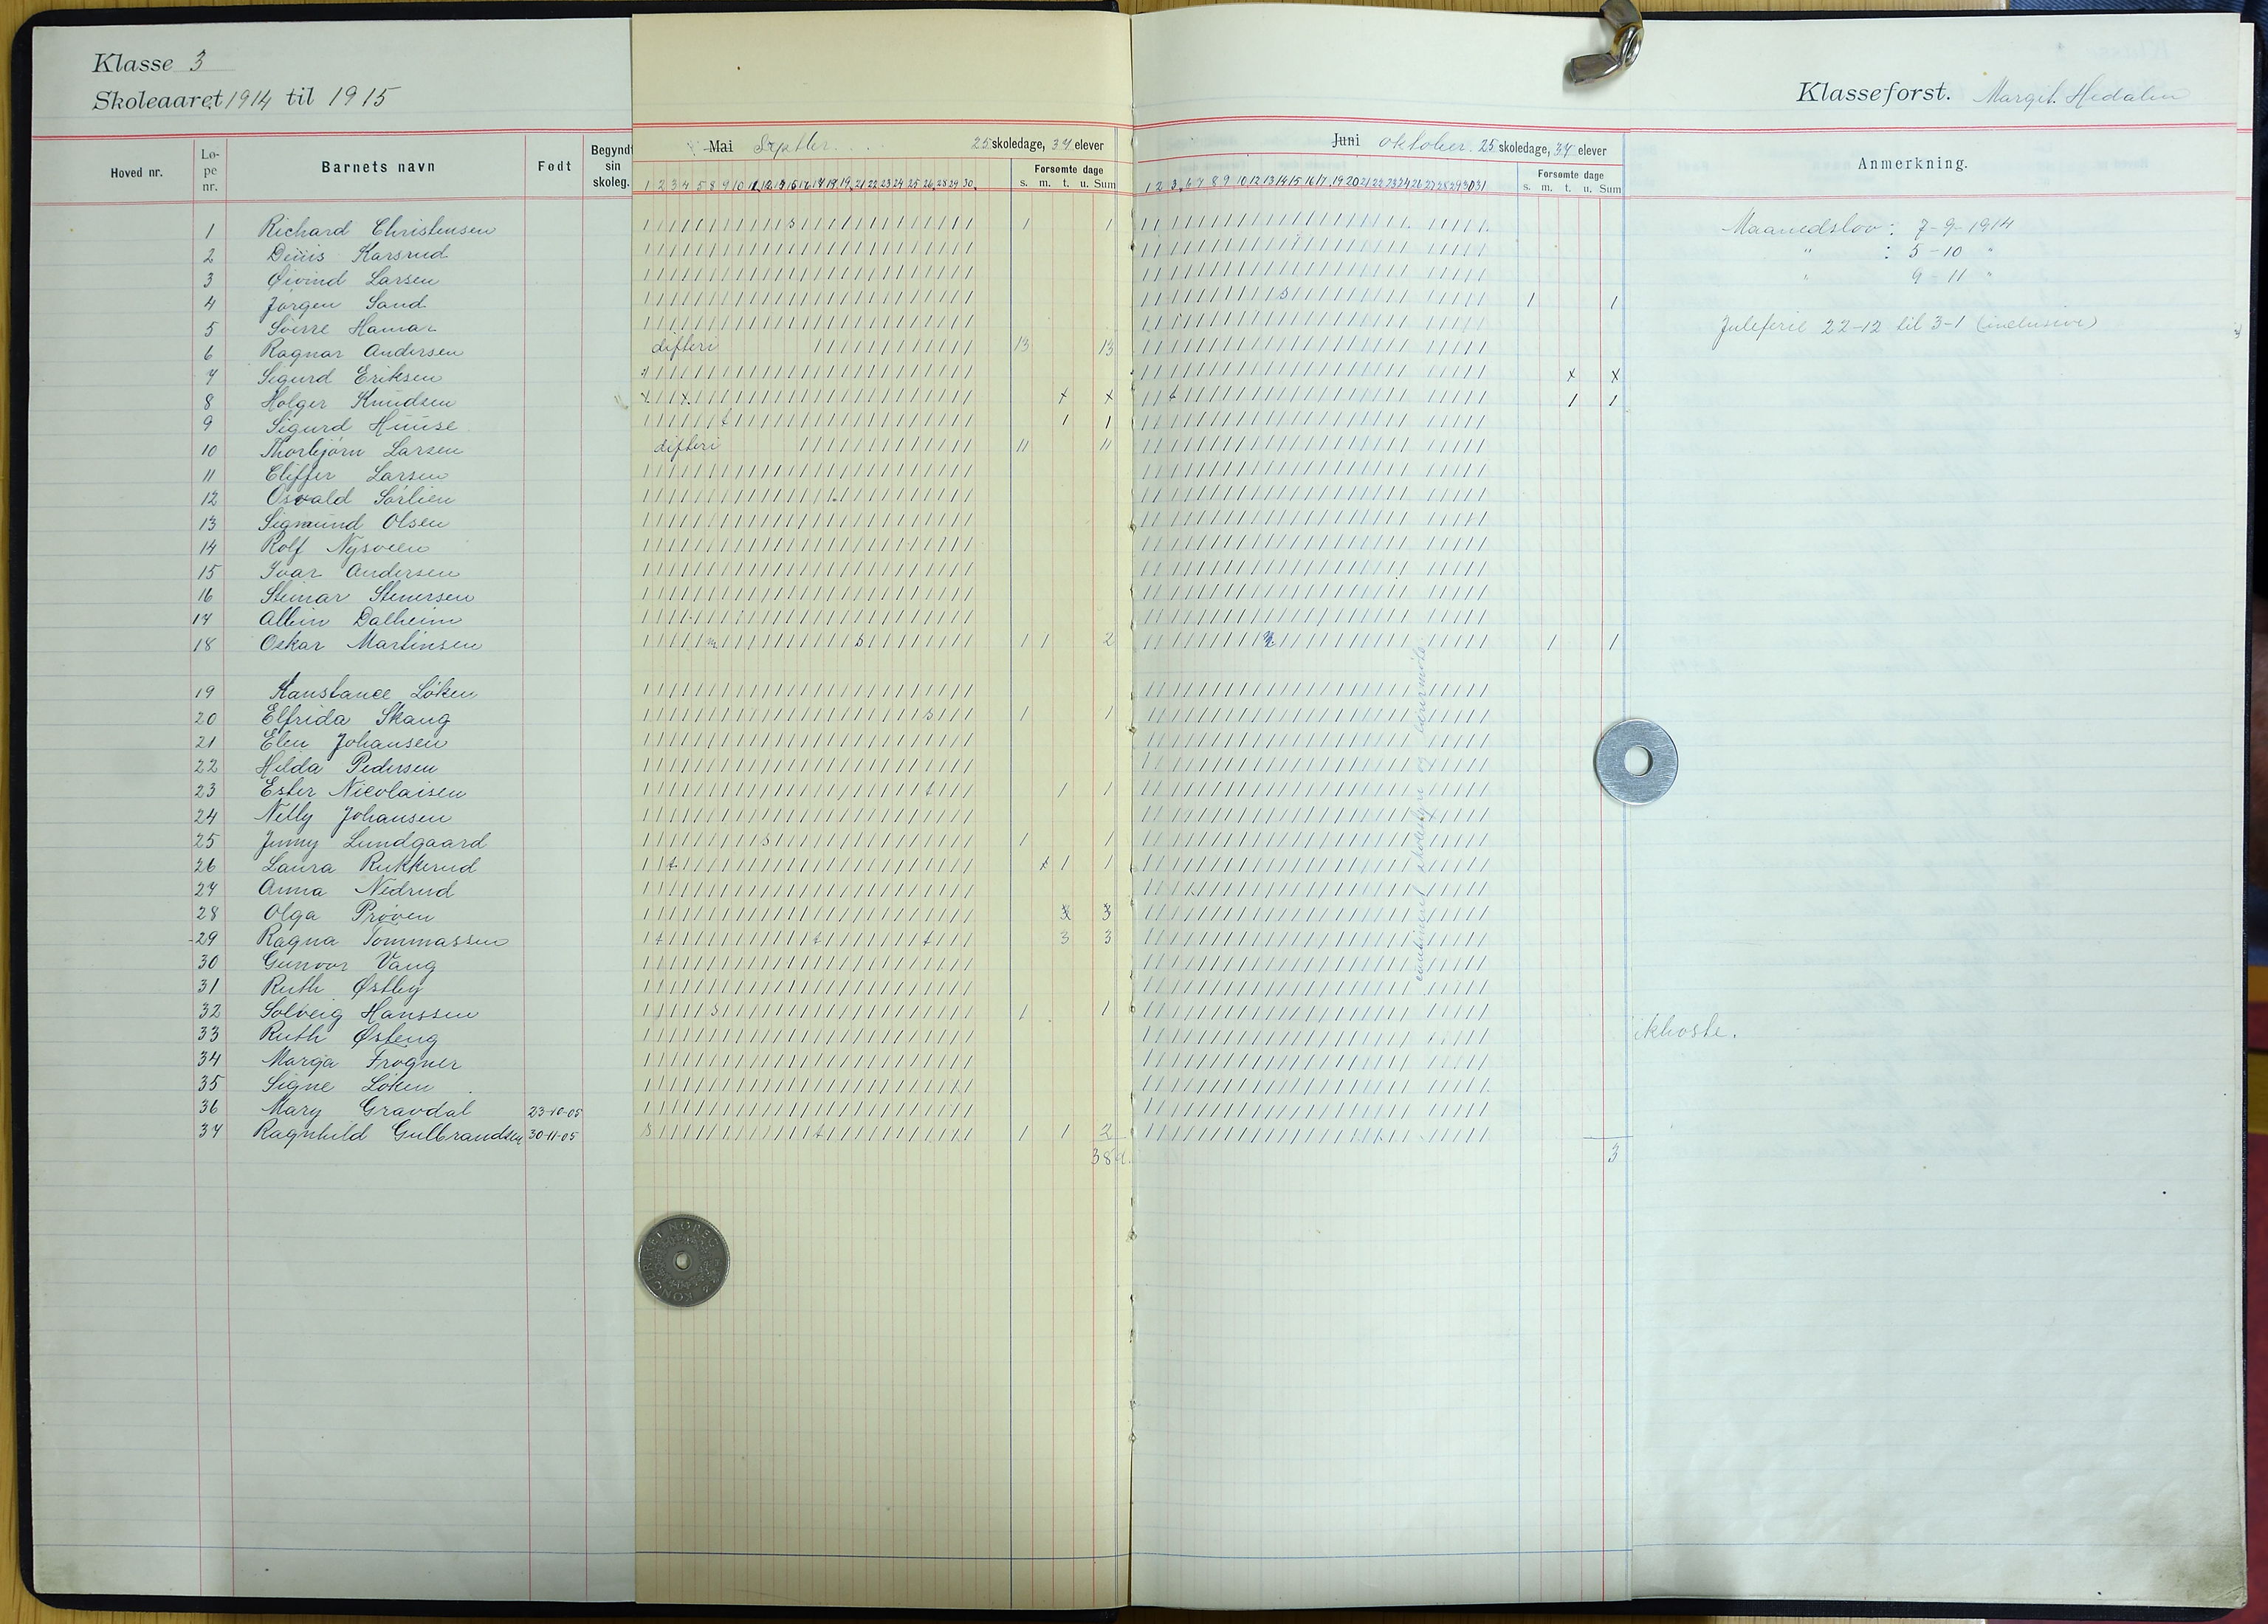 Klasse 3
Skoleaaret 1914 til 1915
Klasseforst. Margit Hedalen
Hoved nr.
Lø-
pe
nr.
Barnets navn
Født
Begyndt
sin
skoleg.
Mai Septbr. 25 skoledage, 37 elever
Forsømte dage
s. m. t. u. Sum
Juni oktober. 25 skoledage, 37 elever
Forsømte dage
s. m. t. u. Sum
Anmerkning.
1 Richard Christensen 1 1
2 Karsrud
3 Øivind Larsen
4 Jørgen Sand 1 1
5 Sverre Hamar
6 Ragnar Andersen difteri 13 13
7 Sigurd Eriksen x x
8 Holger Knudsen x x 1 1
9 Sigurd Huuse 1 1
10 Thorbjørn Larsen difteri 11 11
11 Larsen
12 Osvald Sørlien
13 Sigmund Olsen
14 Rolf Nysveen
15 Ivar Andersen
16 Steinar Stenersen
17 Albin Dalheim
18 Oskar Martinsen 1 1 2 1 1
19 Konstance Løken
20 Elfrida Skaug 1 1
21 Elen Johansen
22 Hilda Pedersen
23 Ester Nicolaisen 1 1
24 Nelly Johansen
25 Jenny Lundgaard 1 1
26 Laura Rukkerud 1 1
27 Anna Nedrud
28 Olga Prøven
29 Ragna Tommassen 3 3
30 Gunvor Vang
31 Ruth Østby
32 Solveig Hanssen 1 1
33 Ruth Østeng
34 Marga Frogner
35 Signe Løken
36 Mary Gravdal 23-10-05
37 Ragnhild Gulbrandsen 30-11-05 1 1 2
38
3
Maanedslov: 7-9-1914
" : 5-10 "
" 9-11 "
Juleferie 22-12 til 3-1 (inclusive)
ikhoste.
skolestyre og lærermøte
KONGERIKET NORGE